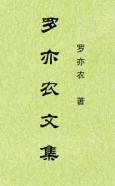 罗亦农文集
罗亦农 著